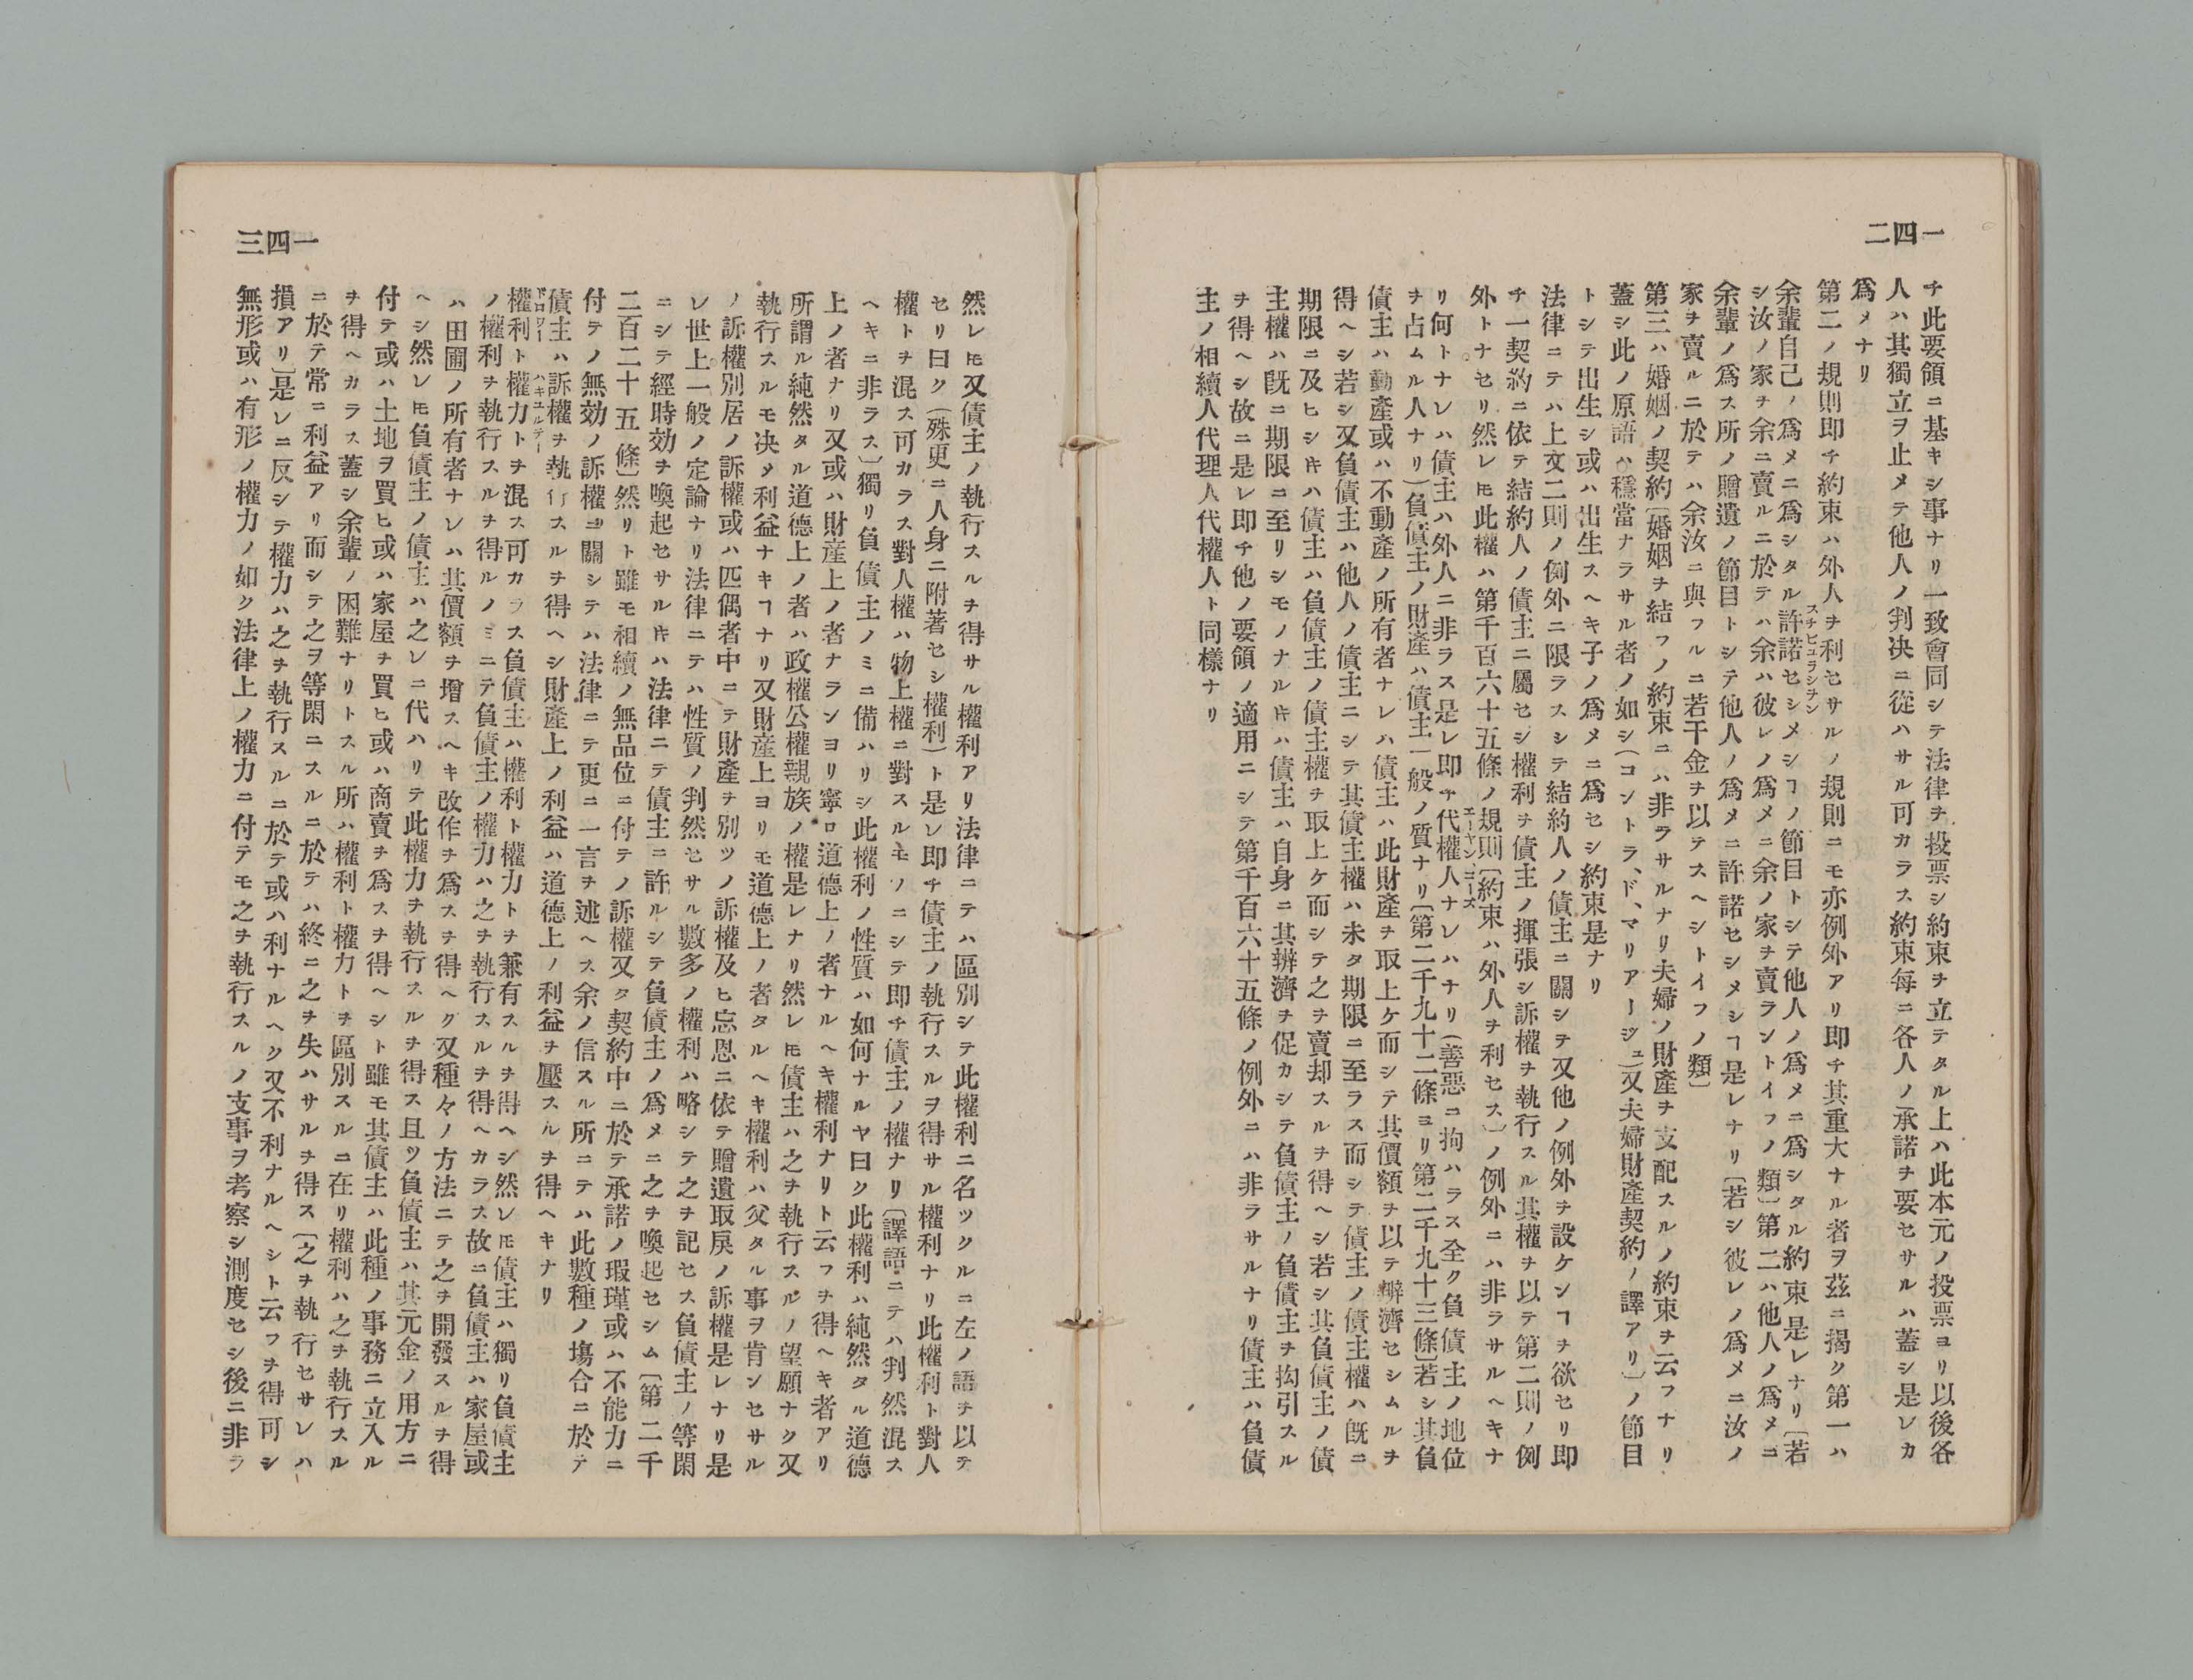 一四二
チ此要領ニ基キシ事ナリ一致會同シテ法律ヲ投票シ約束ヲ立テタル上ハ此本元ノ投票ヨリ以後各
人ハ其獨立ヲ止メテ他人ノ判决ニ從ハサル可カラス約束每ニ各人ノ承諾ヲ要セサルハ蓋シ是レカ
爲メナリ
第二ノ規則即チ約束ハ外人ヲ利セサルノ規則ニモ亦例外アリ即チ其重大ナル者ヲ茲ニ揭ク第一ハ
余輩自己ノ爲メニ爲シタル許諾セシメシヿノ節目トシテ他人ノ爲メニ爲シタル約束是レナリ〔若
スチピュラシヲン
シ汝ノ家ヲ余ニ賣ルニ於テハ余ハ彼レノ爲メニ余ノ家ヲ賣ラントイフノ類〕第二ハ他人ノ爲メニ
余輩ノ爲ス所ノ贈遺ノ節目トシテ他人ノ爲メニ許諾セシメシヿ是レナリ〔若シ彼レノ爲メニ汝ノ
家ヲ賣ルニ於テハ余汝ニ與フルニ若干金ヲ以テスヘシトイフノ類〕
第三ハ婚姻ノ契約〔婚姻ヲ結フノ約束ニハ非ラサルナリ夫婦ノ財產ヲ支配スルノ約束ヲ云フナリ
蓋シ此ノ原語ハ穩當ナラサル者ノ如シ(コントラ、ド、マリアージュ)又夫婦財產契約ノ譯アリ〕ノ節目
トシテ出生シ或ハ出生スヘキ子ノ爲メニ爲セシ約束是ナリ
法律ニテハ上文二則ノ例外ニ限ラスシテ結約人ノ債主ニ關シヲ又他ノ例外ヲ設ケンヿヲ欲セリ即
チ一契約ニ依テ結約人ノ債主ニ屬セシ權利ヲ債主ノ揮張シ訴權ヲ執行スル其權ヲ以テ第二則ノ例
外トナセリ然レ𪜈此權ハ第千百六十五條ノ規則〔約束ハ外人ヲ利セス〕ノ例外ニハ非ラサルヘキナ
リ何トナレハ債主ハ外人ニ非ラス是レ即チ代權人ナレハナリ(善惡ニ拘ハラス全ク負債主ノ地位
エーヤン、コーズ
ヲ占ムル人ナリ)負債主ノ財產ハ債主一般ノ質ナリ〔第二千九十二條ヨリ第二千九十三條〕若シ其負
債主ハ動產或ハ不動產ノ所有者ナレハ債主ハ此財產ヲ取上ケ而シテ其價額ヲ以テ辨濟セシムルヲ
得ヘシ若シ又負債主ハ他人ノ債主ニシテ其債主權ハ未タ期限ニ至ラス而シテ債主ノ債主權ハ既ニ
期限ニ及ヒシ𪜈ハ債主ハ負債主ノ債主權ヲ取上ケ而シテ之ヲ賣却スルヲ得ヘシ若シ其負債主ノ債
主權ハ既ニ期限ニ至リシモノナル𪜈ハ債主ハ自身ニ其辨濟ヲ促カシテ負債主ノ負債主ヲ拘引スル
ヲ得ヘシ故ニ是レ即チ他ノ要領ノ適用ニシテ第千百六十五條ノ例外ニハ非ラサルナリ債主ハ負債
主ノ相續人代理人代權人ト同樣ナリ
一四三
然レ𪜈又債主ノ執行スルヲ得サル權利アリ法律ニテハ區別シテ此權利ニ名ツクルニ左ノ語ヲ以テ
セリ曰ク(殊更ニ人身ニ附著セシ權利)ト是レ即チ債主ノ執行スルヲ得サル權利ナリ此權利ト對人
權トヲ混ス可カラス對人權ハ物上權ニ對スルモノニシテ即チ債主ノ權ナリ〔譯語ニテハ判然混ス
ヘキニ非ラス〕獨リ負債主ノミニ備ハリシ此權利ノ性質ハ如何ナルヤ曰ク此權利ハ純然タル道德
上ノ者ナリ又或ハ財產上ノ者ナランヨリ寧ロ道德上ノ者ナルヘキ權利ナリト云フヲ得ヘキ者アリ
所謂ル純然タル道德上ノ者ハ政權公權親族ノ權是レナリ然レ𪜈債主ハ之ヲ執行スルノ望願ナク又
執行スルモ决タ利益ナキヿナリ又財產上ヨリモ道德上ノ者タルヘキ權利ハ父タル事ヲ肯ンセサル
ノ訴權別居ノ訴權或ハ匹偶者中ニテ財產ヲ別ツノ訴權及ヒ忘恩ニ依テ贈遺取戾ノ訴權是レナリ是
レ世上一般ノ定論ナリ法律ニテハ性質ノ判然セサル數多ノ權利ハ略シテ之ヲ記セス負債主ノ等閑
ニシテ經時効ヲ喚起セサル𪜈ハ法律ニテ債主ニ許ルシテ負債主ノ爲メニ之ヲ喚起セシム〔第二千
二百二十五條〕然リト雖モ相續ノ無品位ニ付テノ訴權又タ契約中ニ於テ承諾ノ瑕瑾或ハ不能力ニ
付テノ無効ノ訴權ニ關シテハ法律ニテ更ニ一言ヲ述ヘス余ノ信スル所ニテハ此數種ノ塲合ニ於テ
債主ハ訴權ヲ執行スルヲ得ヘシ財產上ノ利益ハ道德上ノ利益ヲ壓スルヲ得ヘキナリ
ドロワー　ハキユルテー
權利ト權力トヲ混ス可カラス負債主ハ權利ト權力トヲ兼有スルヲ得ヘシ然レ𪜈債主ハ獨リ負債主
ノ權利ヲ執行スルヲ得ルノミニテ負債主ノ權力ハ之ヲ執行スルヲ得ヘカラス故ニ負債主ハ家屋或
ハ田圃ノ所有者ナレハ其價額ヲ增スヘキ改作ヲ爲スヲ得ヘク又種々ノ方法ニテ之ヲ開發スルヲ得
ヘシ然レ𪜈負債主ノ債主ハ之レニ代ハリテ此權力ヲ執行スルヲ得ス且ツ負債主ハ其元金ノ用方ニ
付テ或ハ土地ヲ買ヒ或ハ家屋ヲ買ヒ或ハ商賣ヲ爲スヲ得ヘシト雖モ其債主ハ此種ノ事務ニ立入ル
ヲ得ヘカラス蓋シ余輩ノ困難ナリトスル所ハ權利ト權力トヲ區別スルニ在リ權利ハ之ヲ執行スル
ニ於テ常ニ利益アリ而シテ之ヲ等閑ニスルニ於テハ終ニ之ヲ失ハサルヲ得ス〔之ヲ執行セサレハ
損アリ〕是レニ反シテ權力ハ之ヲ執行スルニ於テ或ハ利ナルヘク又不利ナルヘシト云フヲ得可シ
無形或ハ有形ノ權力ノ如ク法律上ノ權力ニ付テモ之ヲ執行スルノ支事ヲ考察シ測度セシ後ニ非ラ